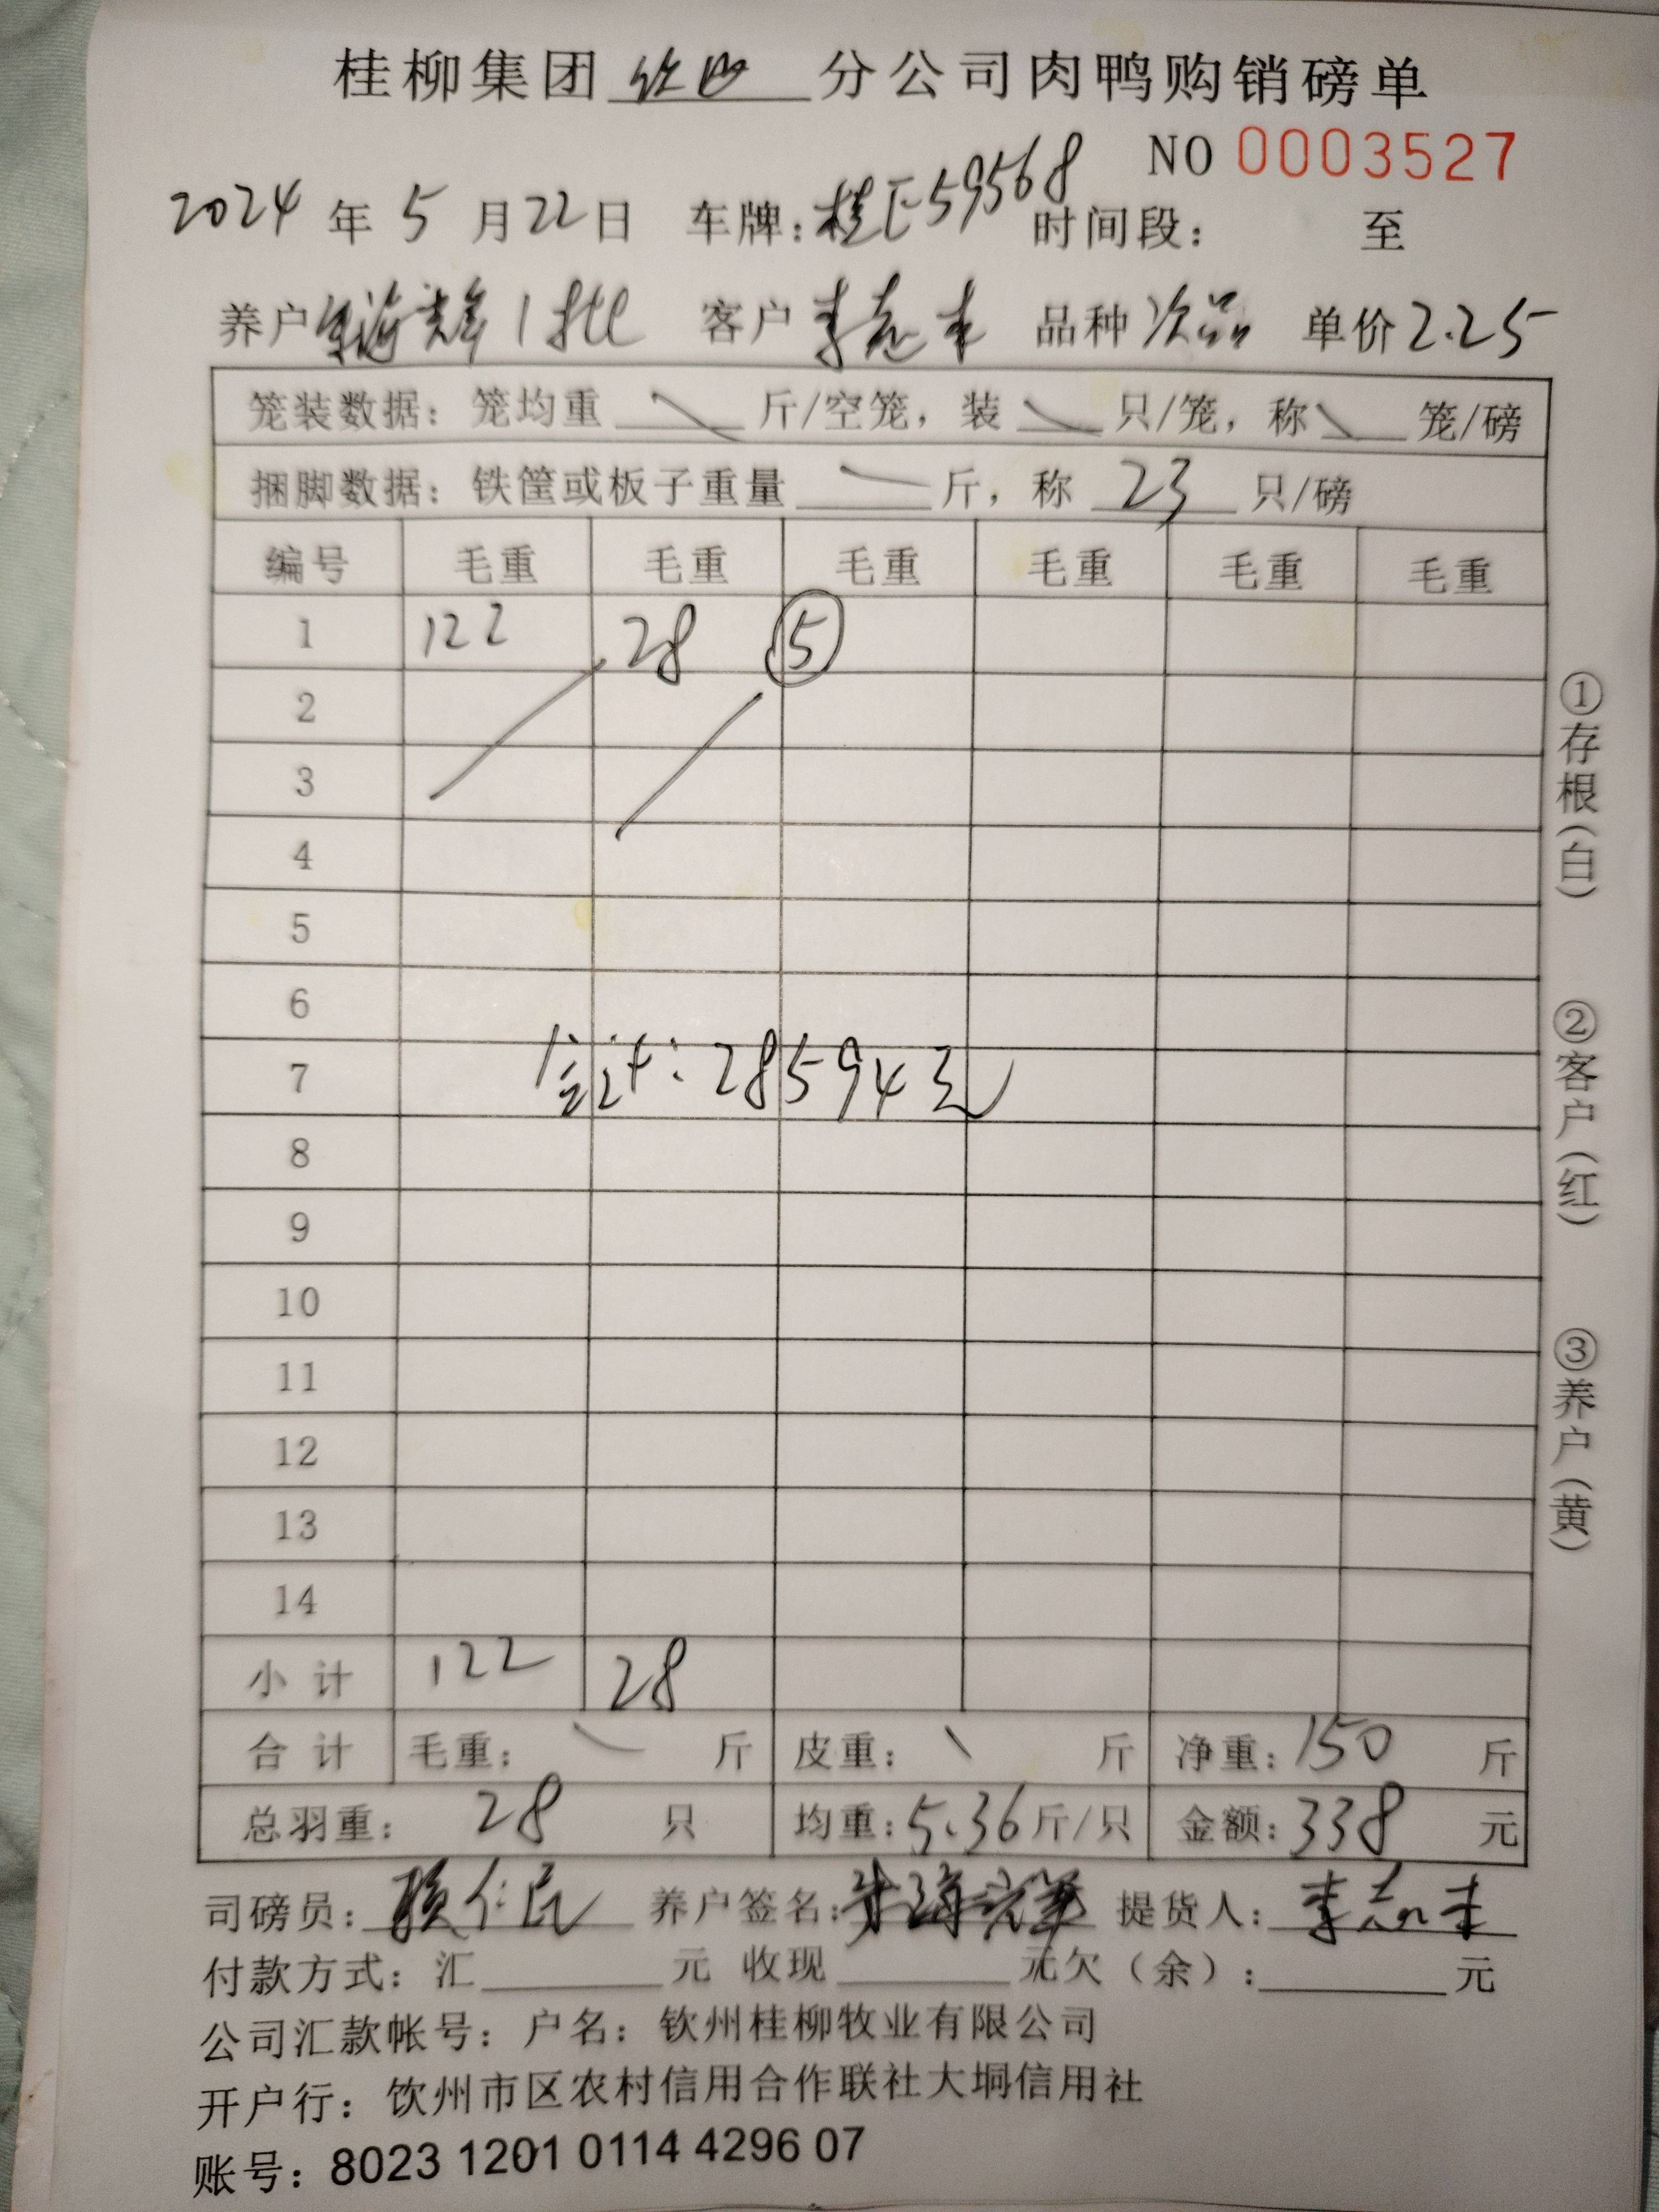 桂柳集团 钦州 分公司肉鸭购销磅单
NO 0003527
2024 年 5 月 22 日 车牌：桂E59568 时间段： 至
养户 朱海辉 1批 客户 李志丰 品种 次品 单价 2.25
笼装数据：笼均重 斤/空笼，装 只/笼，称 笼/磅
捆脚数据：铁筐或板子重量 斤，称 23 只/磅
编号 毛重 毛重 毛重 毛重 毛重 毛重
1 122 28 ⑤
2
3
4
5
6
7 合计：28594元
8
9
10
11
12
13
14
小计 122 28
合计 毛重： 斤 皮重： 斤 净重：150 斤
总羽重： 28 只 均重：5.36斤/只 金额：338 元
司磅员： 仁民 养户签名：朱海辉 提货人：李志丰
付款方式：汇 元 收现 元欠（余）： 元
公司汇款帐号：户名：钦州桂柳牧业有限公司
开户行：钦州市区农村信用合作联社大垌信用社
账号：8023 1201 0114 4296 07
①存根（白）
②客户（红）
③养户（黄）